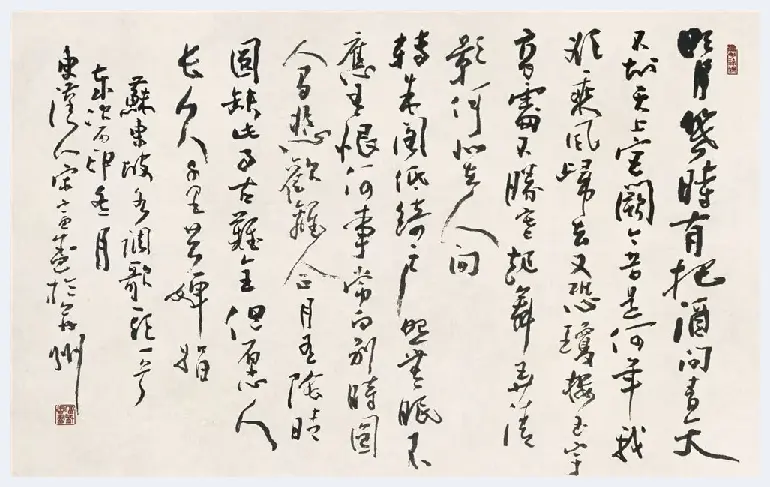 明月幾時有把酒问青天
不知天上宫闕今昔是何年我
欲乘風歸去又恐瓊樓玉宇
高處不勝寒起舞弄清
影何似在人间
轉朱閣低綺户照無眠不
應無恨何事常向别時圓
人有悲歡離合月有陰晴
圓缺此事古難全但愿人
长久千里共嬋娟
蘇東坡水調歌头一首
月
東漢人宋於州